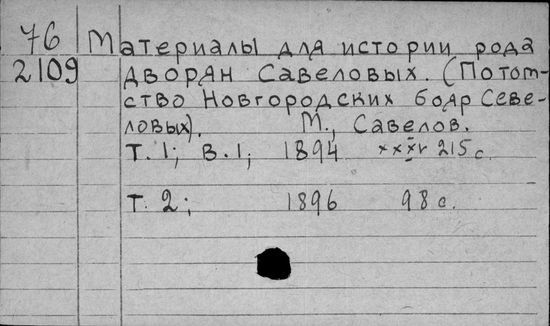 76 Материалы для истории рода
2109 дворян Савеловых. (Потом-
ство Новгородских бояр Севе-
ловых). М., Савелов.
Т. 1; В. 1; 1894 215 с.
Т. 2; 1896 98 с.